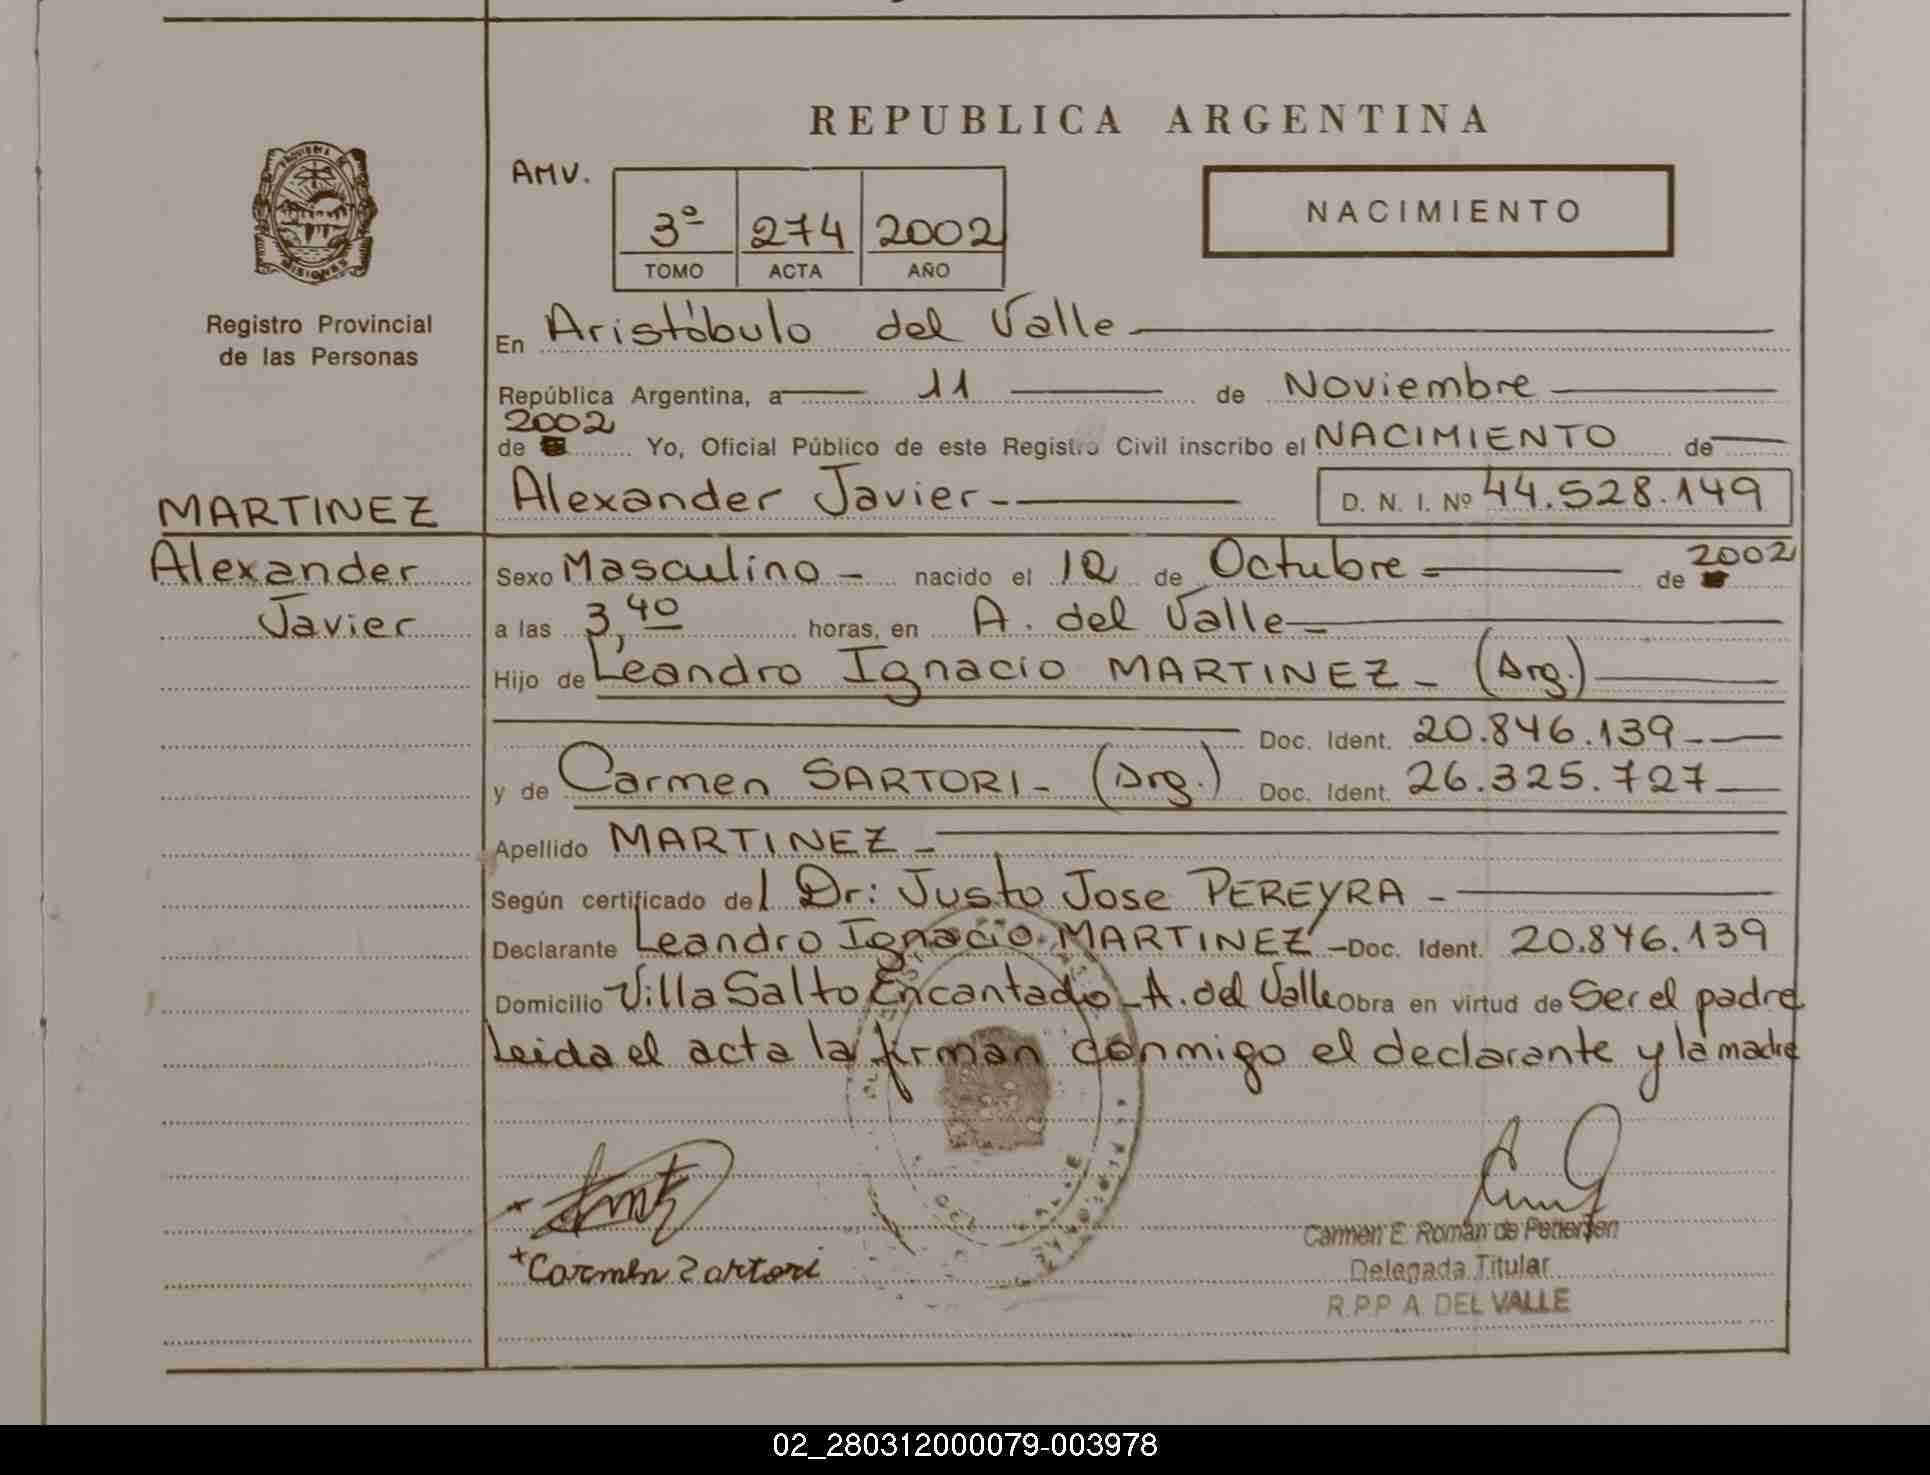 REPUBLICA ARGENTINA
AMV.
3º 274 2002
TOMO ACTA AÑO
NACIMIENTO
PROVINCIA DE
MISIONES
Registro Provincial
de las Personas
En Aristóbulo del Valle
República Argentina, a 11 de Noviembre
2002
de Yo, Oficial Público de este Registro Civil inscribo el NACIMIENTO de
MARTINEZ
Alexander
Javier
Alexander Javier - D. N. I. Nº 44.528.149
Sexo Masculino - nacido el 12 de Octubre - de 2002
a las 3,40 horas, en A. del Valle -
Hijo de Leandro Ignacio MARTINEZ - (Arg.)
Doc. Ident. 20.846.139 -
y de Carmen SARTORI - (Arg.) Doc. Ident. 26.325.727
Apellido MARTINEZ -
Según certificado del Dr: Justo Jose PEREYRA -
Declarante Leandro Ignacio MARTINEZ - Doc. Ident. 20.846.139
Domicilio Villa Salto Encantado - A. del Valle Obra en virtud de Ser el padre
Leida el acta la firman conmigo el declarante y la madre
+ Carmen Sartori
Carmen E. Román de Petterjen
Delegada Titular
R.P.P A. DEL VALLE
02_280312000079-003978